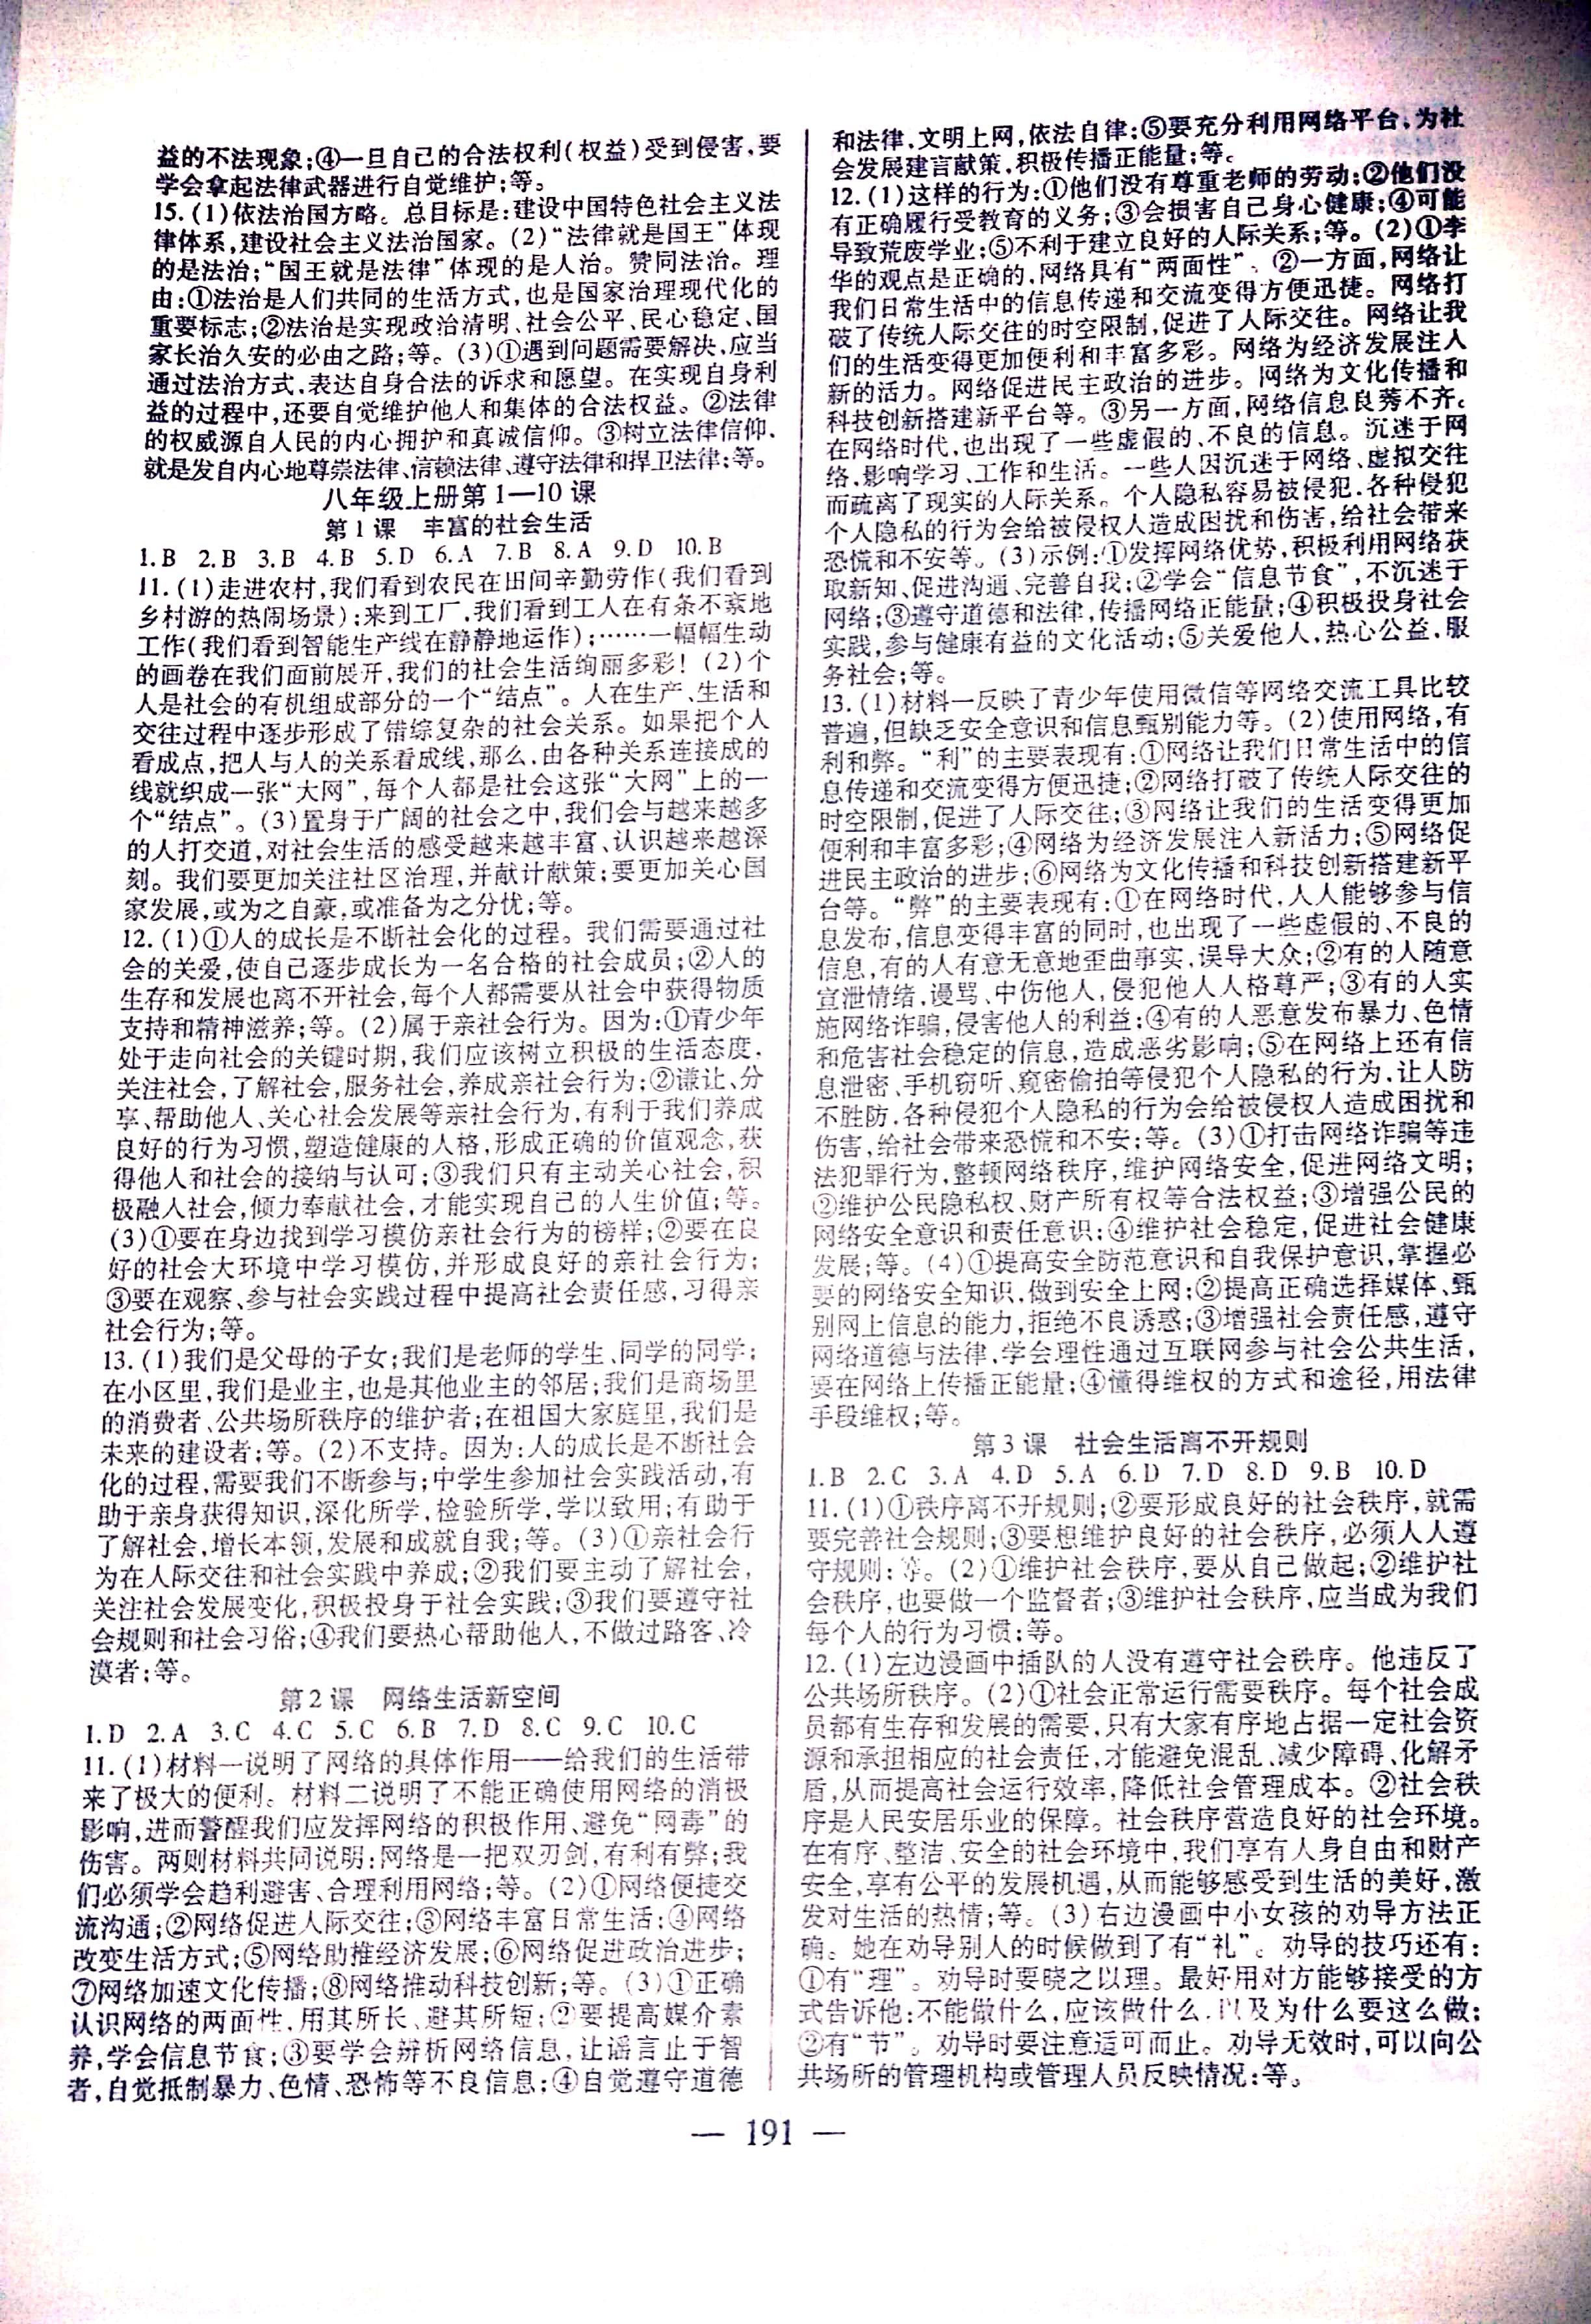 益的不法现象;④一旦自己的合法权利(权益)受到侵害,要
学会拿起法律武器进行自觉维护;等。
15.(1)依法治国方略。总目标是:建设中国特色社会主义法
律体系,建设社会主义法治国家。(2)“法律就是国王”体现
的是法治;“国王就是法律”体现的是人治。赞同法治。理
由:①法治是人们共同的生活方式,也是国家治理现代化的
重要标志;②法治是实现政治清明、社会公平、民心稳定、国
家长治久安的必由之路;等。(3)①遇到问题需要解决,应当
通过法治方式,表达自身合法的诉求和愿望。在实现自身利
益的过程中,还要自觉维护他人和集体的合法权益。②法律
的权威源自人民的内心拥护和真诚信仰。③树立法律信仰,
就是发自内心地尊崇法律、信赖法律、遵守法律和捍卫法律;等。
八年级上册第1—10课
第1课 丰富的社会生活
1.B 2.B 3.B 4.B 5.D 6.A 7.B 8.A 9.D 10.B
11.(1)走进农村,我们看到农民在田间辛勤劳作(我们看到
乡村游的热闹场景);来到工厂,我们看到工人在有条不紊地
工作(我们看到智能生产线在静静地运作);……一幅幅生动
的画卷在我们面前展开,我们的社会生活绚丽多彩!(2)个
人是社会的有机组成部分的一个“结点”。人在生产、生活和
交往过程中逐步形成了错综复杂的社会关系。如果把个人
看成点,把人与人的关系看成线,那么,由各种关系连接成的
线就织成一张“大网”,每个人都是社会这张“大网”上的一
个“结点”。(3)置身于广阔的社会之中,我们会与越来越多
的人打交道,对社会生活的感受越来越丰富、认识越来越深
刻。我们要更加关注社区治理,并献计献策;要更加关心国
家发展,或为之自豪,或准备为之分忧;等。
12.(1)①人的成长是不断社会化的过程。我们需要通过社
会的关爱,使自己逐步成长为一名合格的社会成员;②人的
生存和发展也离不开社会,每个人都需要从社会中获得物质
支持和精神滋养;等。(2)属于亲社会行为。因为:①青少年
处于走向社会的关键时期,我们应该树立积极的生活态度,
关注社会,了解社会,服务社会,养成亲社会行为;②谦让、分
享、帮助他人、关心社会发展等亲社会行为,有利于我们养成
良好的行为习惯,塑造健康的人格,形成正确的价值观念,获
得他人和社会的接纳与认可;③我们只有主动关心社会,积
极融入社会,倾力奉献社会,才能实现自己的人生价值;等。
(3)①要在身边找到学习模仿亲社会行为的榜样;②要在良
好的社会大环境中学习模仿,并形成良好的亲社会行为;
③要在观察、参与社会实践过程中提高社会责任感,习得亲
社会行为;等。
13.(1)我们是父母的子女;我们是老师的学生、同学的同学;
在小区里,我们是业主,也是其他业主的邻居;我们是商场里
的消费者、公共场所秩序的维护者;在祖国大家庭里,我们是
未来的建设者;等。(2)不支持。因为:人的成长是不断社会
化的过程,需要我们不断参与;中学生参加社会实践活动,有
助于亲身获得知识,深化所学,检验所学,学以致用;有助于
了解社会,增长本领,发展和成就自我;等。(3)①亲社会行
为在人际交往和社会实践中养成;②我们要主动了解社会,
关注社会发展变化,积极投身于社会实践;③我们要遵守社
会规则和社会习俗;④我们要热心帮助他人,不做过路客、冷
漠者;等。
第2课 网络生活新空间
1.D 2.A 3.C 4.C 5.C 6.B 7.D 8.C 9.C 10.C
11.(1)材料一说明了网络的具体作用——给我们的生活带
来了极大的便利。材料二说明了不能正确使用网络的消极
影响,进而警醒我们应发挥网络的积极作用、避免“网毒”的
伤害。两则材料共同说明:网络是一把双刃剑,有利有弊;我
们必须学会趋利避害、合理利用网络;等。(2)①网络便捷交
流沟通;②网络促进人际交往;③网络丰富日常生活;④网络
改变生活方式;⑤网络助推经济发展;⑥网络促进政治进步;
⑦网络加速文化传播;⑧网络推动科技创新;等。(3)①正确
认识网络的两面性,用其所长、避其所短;②要提高媒介素
养,学会信息节食;③要学会辨析网络信息,让谣言止于智
者,自觉抵制暴力、色情、恐怖等不良信息;④自觉遵守道德
和法律,文明上网,依法自律;⑤要充分利用网络平台,为社
会发展建言献策,积极传播正能量;等。
12.(1)这样的行为:①他们没有尊重老师的劳动;②他们没
有正确履行受教育的义务;③会损害自己身心健康;④可能
导致荒废学业;⑤不利于建立良好的人际关系;等。(2)①李
华的观点是正确的,网络具有“两面性”。②一方面,网络让
我们日常生活中的信息传递和交流变得方便迅捷。网络打
破了传统人际交往的时空限制,促进了人际交往。网络让我
们的生活变得更加便利和丰富多彩。网络为经济发展注入
新的活力。网络促进民主政治的进步。网络为文化传播和
科技创新搭建新平台等。③另一方面,网络信息良莠不齐。
在网络时代,也出现了一些虚假的、不良的信息。沉迷于网
络,影响学习、工作和生活。一些人因沉迷于网络、虚拟交往
而疏离了现实的人际关系。个人隐私容易被侵犯,各种侵犯
个人隐私的行为会给被侵权人造成困扰和伤害,给社会带来
恐慌和不安等。(3)示例:①发挥网络优势,积极利用网络获
取新知、促进沟通、完善自我;②学会“信息节食”,不沉迷于
网络;③遵守道德和法律,传播网络正能量;④积极投身社会
实践,参与健康有益的文化活动;⑤关爱他人,热心公益,服
务社会;等。
13.(1)材料一反映了青少年使用微信等网络交流工具比较
普遍,但缺乏安全意识和信息甄别能力等。(2)使用网络,有
利和弊。“利”的主要表现有:①网络让我们日常生活中的信
息传递和交流变得方便迅捷;②网络打破了传统人际交往的
时空限制,促进了人际交往;③网络让我们的生活变得更加
便利和丰富多彩;④网络为经济发展注入新活力;⑤网络促
进民主政治的进步;⑥网络为文化传播和科技创新搭建新平
台等。“弊”的主要表现有:①在网络时代,人人能够参与信
息发布,信息变得丰富的同时,也出现了一些虚假的、不良的
信息,有的人有意无意地歪曲事实,误导大众;②有的人随意
宣泄情绪,谩骂、中伤他人,侵犯他人人格尊严;③有的人实
施网络诈骗,侵害他人的利益;④有的人恶意发布暴力、色情
和危害社会稳定的信息,造成恶劣影响;⑤在网络上还有信
息泄密、手机窃听、窥密偷拍等侵犯个人隐私的行为,让人防
不胜防,各种侵犯个人隐私的行为会给被侵权人造成困扰和
伤害,给社会带来恐慌和不安;等。(3)①打击网络诈骗等违
法犯罪行为,整顿网络秩序,维护网络安全,促进网络文明;
②维护公民隐私权、财产所有权等合法权益;③增强公民的
网络安全意识和责任意识;④维护社会稳定,促进社会健康
发展;等。(4)①提高安全防范意识和自我保护意识,掌握必
要的网络安全知识,做到安全上网;②提高正确选择媒体、甄
别网上信息的能力,拒绝不良诱惑;③增强社会责任感,遵守
网络道德与法律,学会理性通过互联网参与社会公共生活,
要在网络上传播正能量;④懂得维权的方式和途径,用法律
手段维权;等。
第3课 社会生活离不开规则
1.B 2.C 3.A 4.D 5.A 6.D 7.D 8.D 9.B 10.D
11.(1)①秩序离不开规则;②要形成良好的社会秩序,就需
要完善社会规则;③要想维护良好的社会秩序,必须人人遵
守规则;等。(2)①维护社会秩序,要从自己做起;②维护社
会秩序,也要做一个监督者;③维护社会秩序,应当成为我们
每个人的行为习惯;等。
12.(1)左边漫画中插队的人没有遵守社会秩序。他违反了
公共场所秩序。(2)①社会正常运行需要秩序。每个社会成
员都有生存和发展的需要,只有大家有序地占据一定社会资
源和承担相应的社会责任,才能避免混乱、减少障碍、化解矛
盾,从而提高社会运行效率,降低社会管理成本。②社会秩
序是人民安居乐业的保障。社会秩序营造良好的社会环境。
在有序、整洁、安全的社会环境中,我们享有人身自由和财产
安全,享有公平的发展机遇,从而能够感受到生活的美好,激
发对生活的热情;等。(3)右边漫画中小女孩的劝导方法正
确。她在劝导别人的时候做到了有“礼”。劝导的技巧还有:
①有“理”。劝导时要晓之以理。最好用对方能够接受的方
式告诉他:不能做什么,应该做什么,以及为什么要这么做;
②有“节”。劝导时要注意适可而止。劝导无效时,可以向公
共场所的管理机构或管理人员反映情况;等。
— 191 —